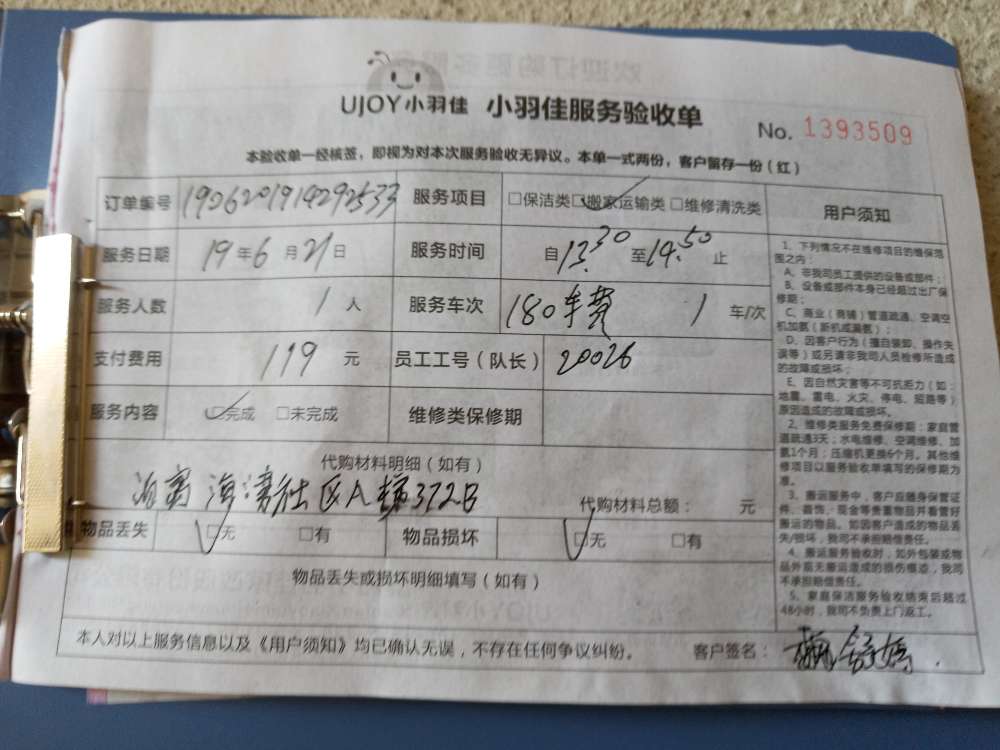 UJOY小羽佳 小羽佳服务验收单
No. 1393509
本验收单一经核签，即视为对本次服务验收无异议。本单一式两份，客户留存一份（红）
订单编号 1906201914292533 服务项目 □保洁类□搬家运输类□维修清洗类
服务日期 19年6月21日 服务时间 自13.30至14.50止
服务人数 1人 服务车次 180车费 1车/次
支付费用 119元 员工工号（队长） 20026
服务内容 □完成 □未完成 维修类保修期
代购材料明细（如有）
海湾社区A栋372B
代购材料总额： 元
物品丢失 □无 □有 物品损坏 □无 □有
物品丢失或损坏明细填写（如有）
本人对以上服务信息以及《用户须知》均已确认无误，不存在任何争议纠纷。 客户签名：
用户须知
1、下列情况不在维修项目的维保范
围之内：
A、非我司员工提供的设备或部件；
B、设备或部件本身已经超过出厂保
修期；
C、商业（商铺）管道疏通、空调空
机加氨（新机或漏氨）；
D、因客户行为（擅自装卸、操作失
误等）或另请非我司人员检修所造成
的故障或损坏；
E、因自然灾害等不可抗拒力（如：
地震、雷电、火灾、停电、短路等）
原因造成的故障或损坏。
2、维修类服务免费保修期：家庭管
道疏通3天；水电维修、空调维修、加
氨1个月；压缩机更换6个月。其他维
修项目以服务验收单填写的保修期为
准。
3、搬运服务中，客户应随身保管证
件、首饰、现金等贵重物品并看管好
搬运的物品。如因客户造成的物品丢
失/损坏，我司不承担赔偿责任。
4、搬运服务验收时，如外包装或物
品外面无搬运造成的损伤痕迹，我司
不承担赔偿责任。
5、家庭保洁服务验收结束后超过
48小时，我司不负责上门返工。